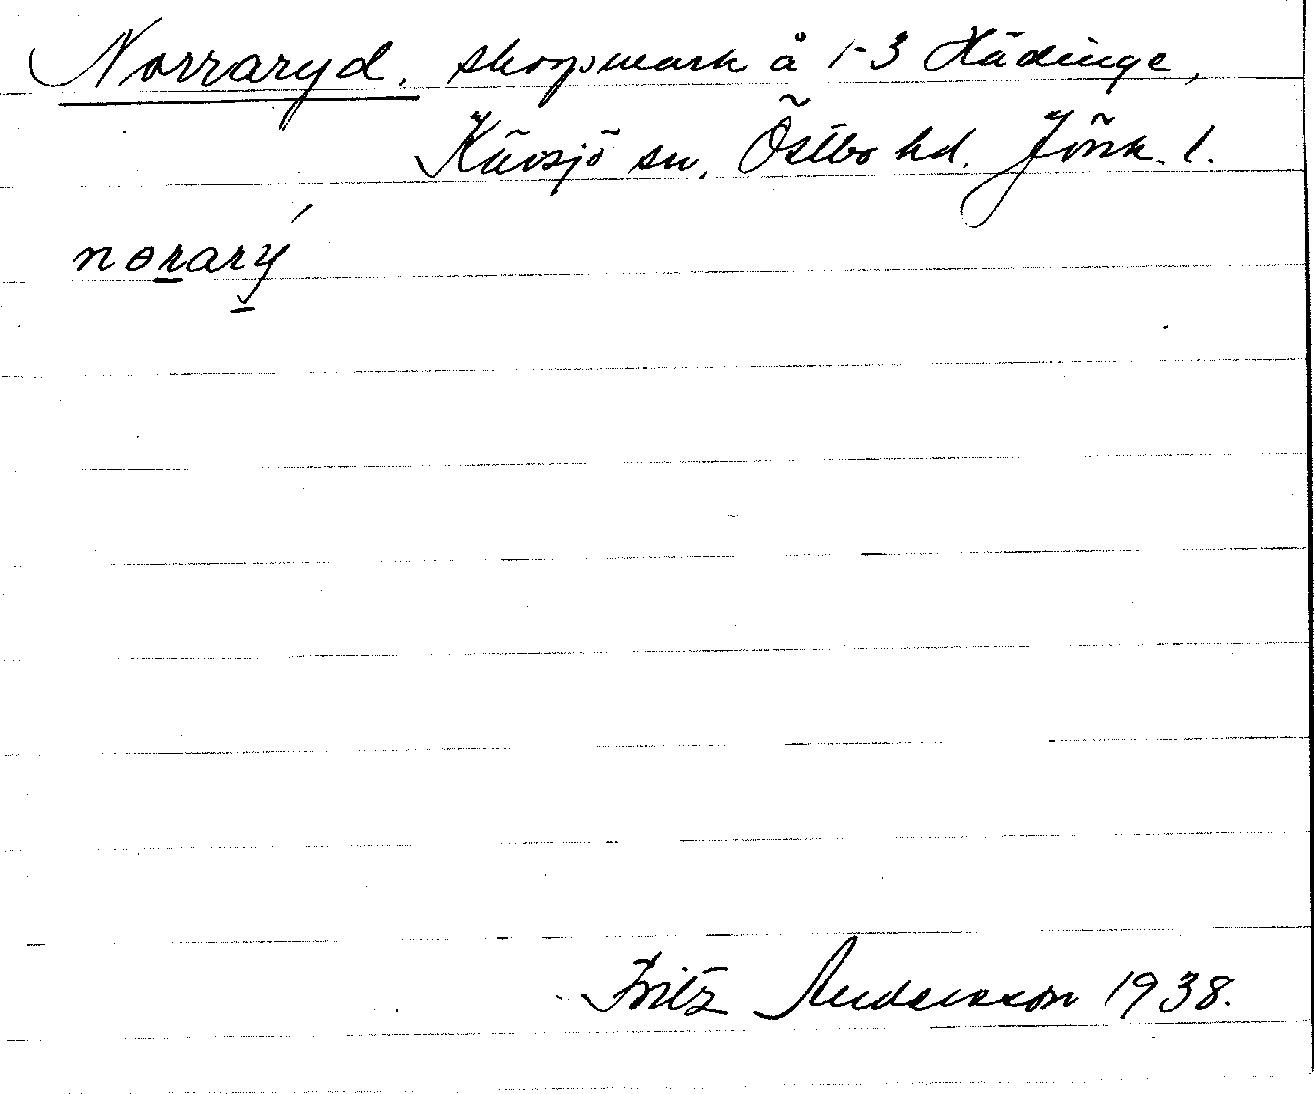 Norraryd. skogsmark å 1-3 Hädinge,
Kävsjö sn, Östbo hd. Jönk. l.
norarý
Fritz Andersson 1938.